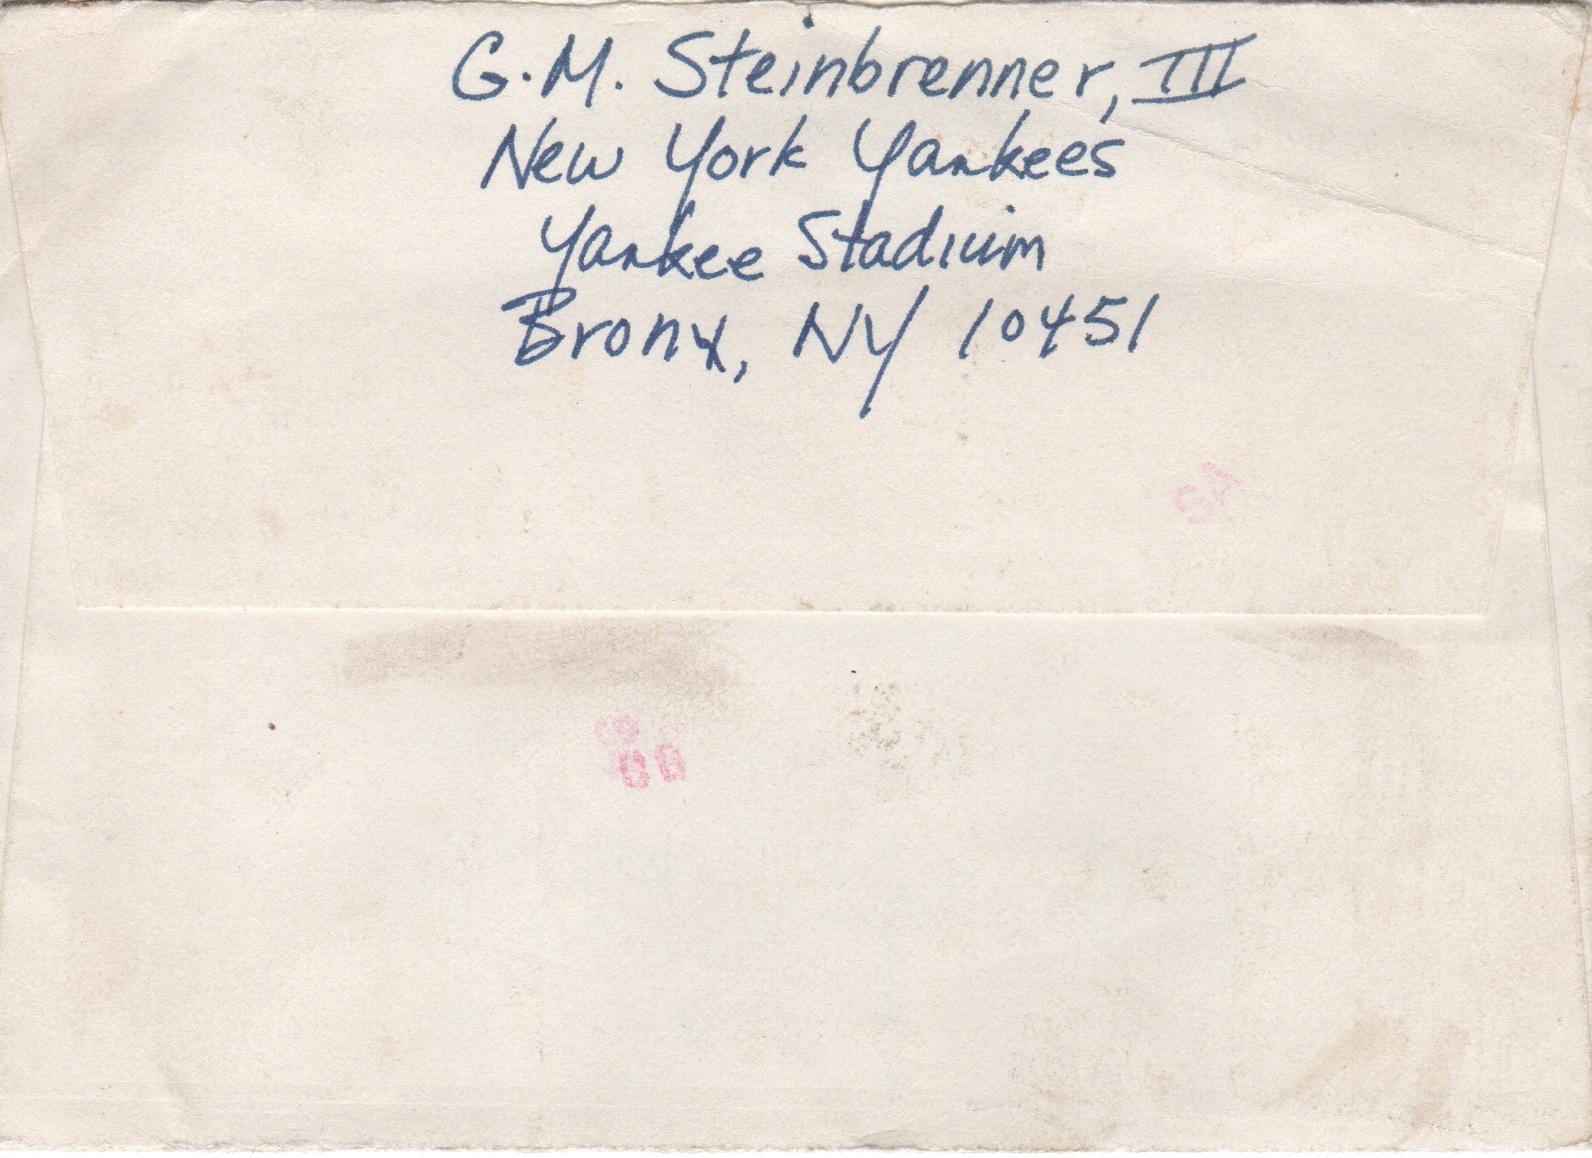 G.M. Steinbrenner, III
New York Yankees
Yankee Stadium
Bronx, NY 10451